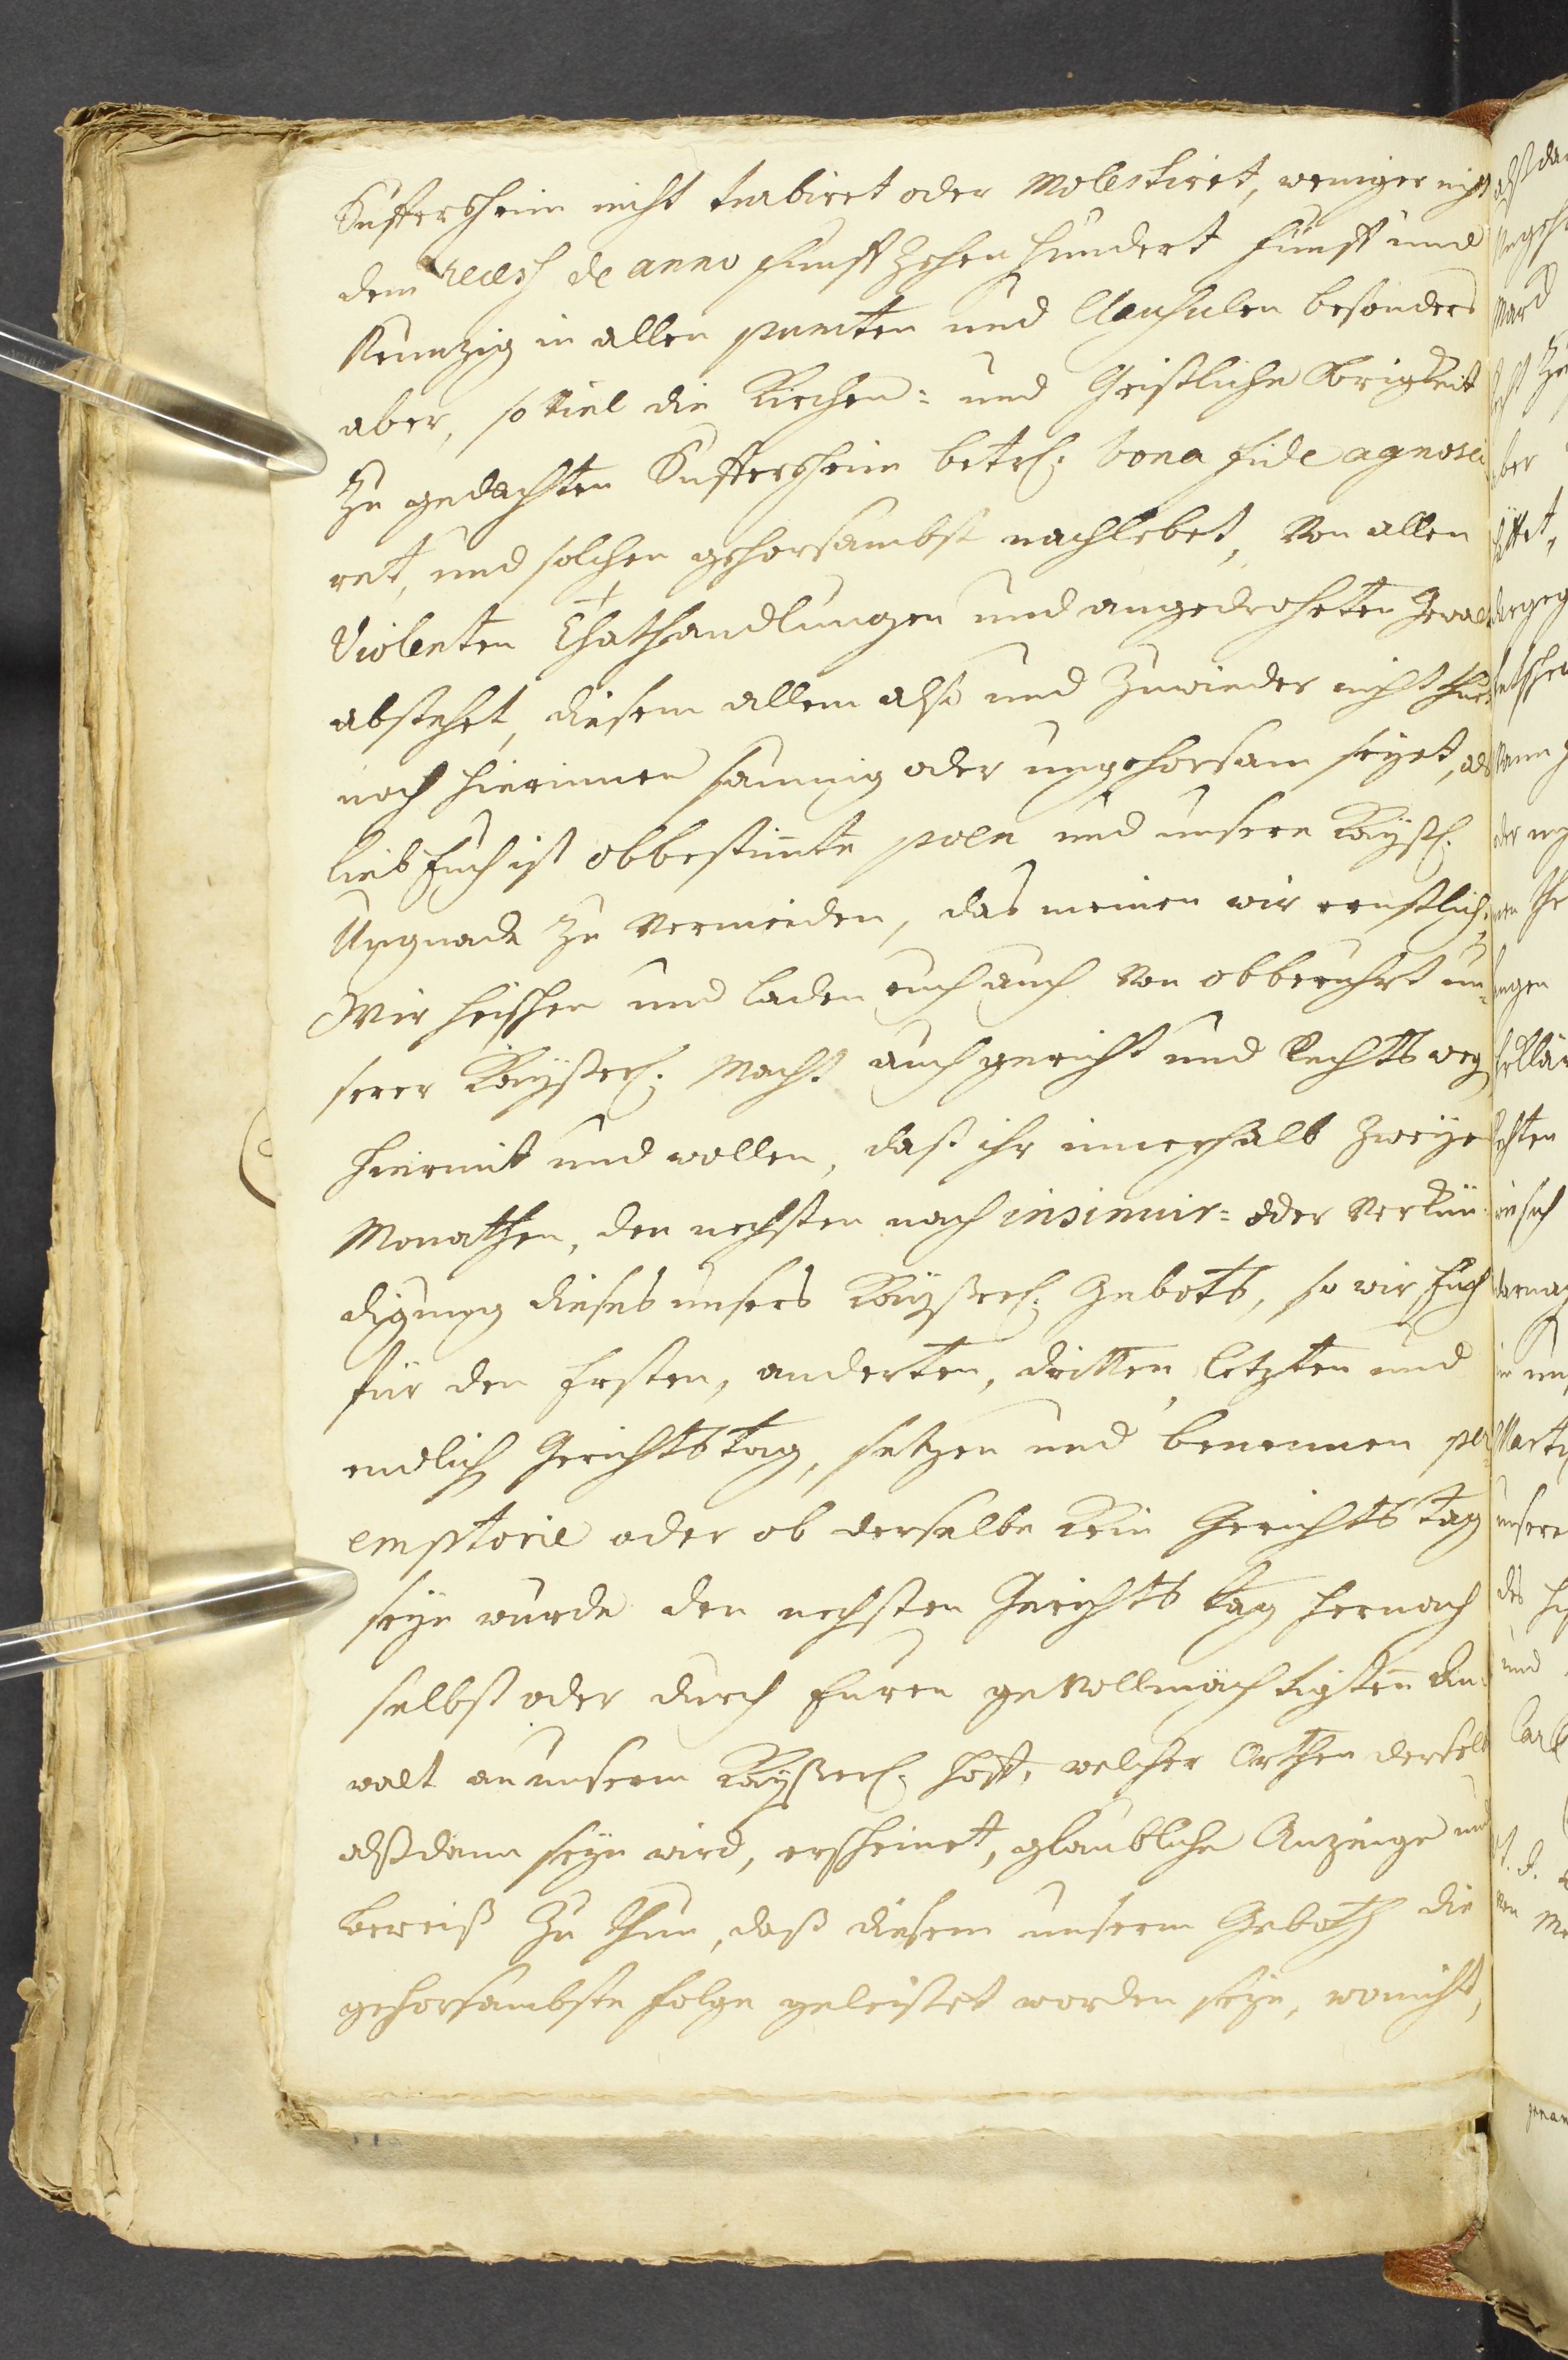 Suffersheim nicht turbiret oder molestiret, weniger nicht
dem recess de anno funff zehen hundert funff und
Neunzig in allen puncten und Clausulen besonders
aber, so viel die Kirchen= und Geistliche Obrigkeit
zu gedachten Suffersheim betr. bona fide agnosci
ret, und solchen gehorsambst nachlebet, von allen
Violenten Thathandlungen und angedroheten Gewalt
abstehet, diesem allem also und zuwieder nicht thuet
noch hierinnen saumig oder ungehorsam seyet, als
lieb Euch ist obbestimte poen und unsere Kayßl.
Ungnade zu vermeiden, das meinen wir ernstlich,
Wir heischen und laden euch auch von obberuhrt un=
serer Kayßerl. Macht auch gericht und Rechts weg
hiermit und wollen, daß ihr innerhalb zweyen
Monathen, den nechsten nach insinuir= oder Verkün
digung dieses unsers Kayßerl. Gebots, so wir Euch
für den Ersten, anderten, dritten, letzten und
endlich Gerichts tag, setzen und benennen per=
emptorie oder ob derselbe kein Gerichts tag
seyn wurde den nechsten Gerichts tag hernach
selbst oder durch Euren gevollmächtigten An=
walt an unserm Kayßerl. Hoff, welcher Orthen derselb
alßdann seyn wird, erscheinet, glaubliche Anzeige und
beweiß zu thun, daß diesem unserm Geboth die
gehorsambste folge geleistet worden seye, wonicht,